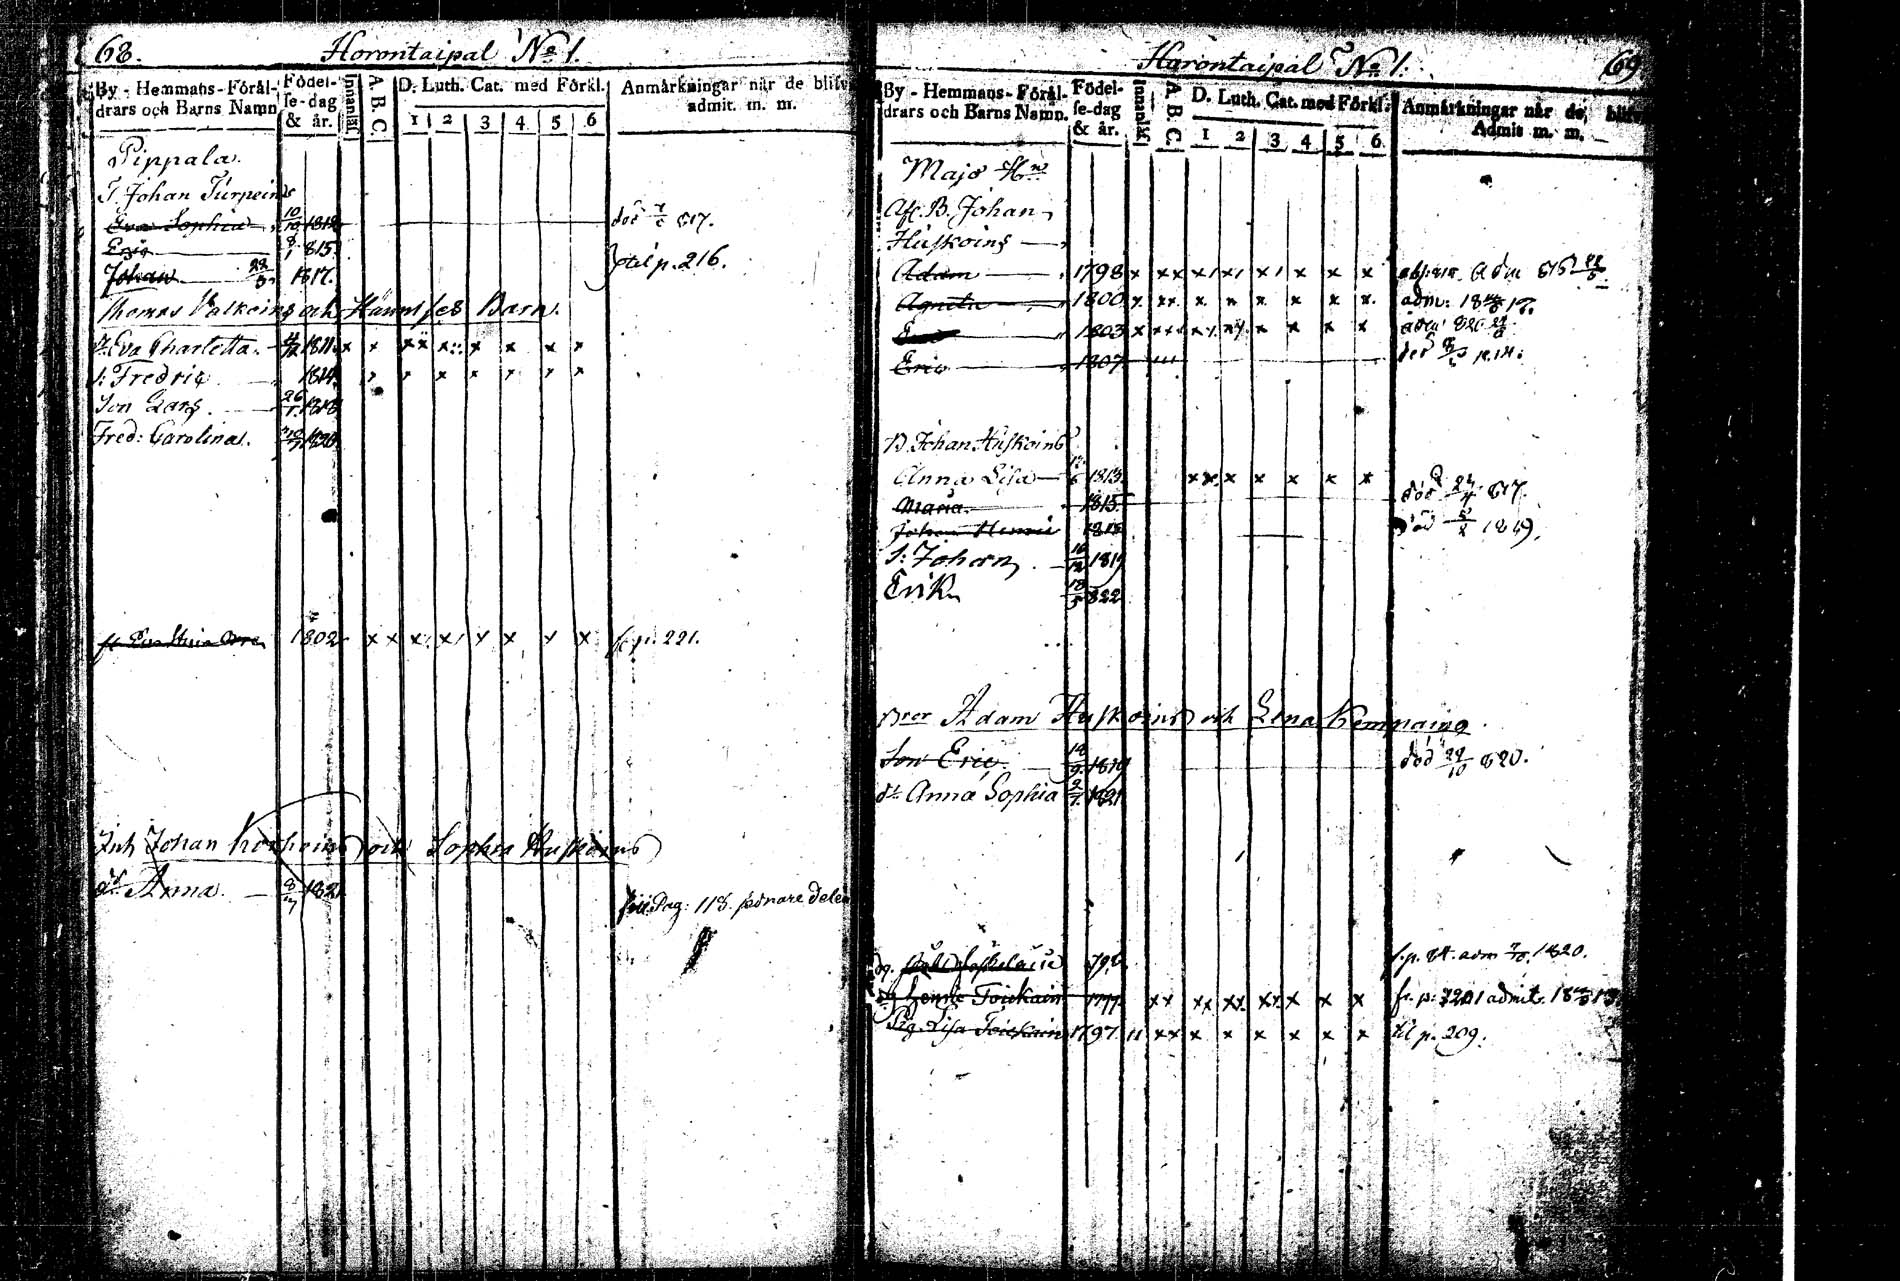 68. Horontaipal No 1.
By - Hemmans - Föräl-
drars och Barns Namn
Födel-
se-dag
& år.
Innanläs.
A. B. C.
D. Luth. Cat. med Förkl.
1 2 3 4 5 6
Anmärkningar når de blifv
admit. m. m.
Pippala.
T. Johan Turpeins
Eva Sophia 10/10 1812 död 817.
Eric 8/1 815. til p. 216.
Johan 22/3 1817.
Thomas Valkoins och Hanns ses Barn.
Dr Eva Charletta. 1811. x x x x x: x x x x
S: Fredric 1814. x x x x x x x
Son Lars. 26/1 1818
Fred: Carolina. 1820
1802 x x x: x x x x x fr p. 221.
Inh Johan och Sophia Huskoins
dr Anna. 8/7 1821
Pag: 118. sednare delen
Horontaipal No 1. 69
By - Hemmans - Föräl-
drars och Barns Namn.
Födel-
se-dag
& år.
Innanläs.
A. B. C.
D. Luth. Cat. med Förkl.
1 2 3 4 5 6
Anmärkningar når de, blifv
Admit m. m.
Majo Hn
Afl. B. Johan
Huskoins
Adam 1798 x xx x x x x x x adm 816
Agneta 1800 x xx. x x x x x x. adm: 18 17.
1803 x xxx x x x x x x adm 820
Eric 1807. död 1814.
B. Johan Huskoins
Anna Lisa 1813. xx. x x x x x
Maria. 1815. död 24/4 817.
Johan Henric 1818 död 1819.
S: Johan 16/12 1819
Erik 18/5 822
Bror Adam Huskoins och Lena Kemppains.
Son Eric. 18/9. 1819 död 22/10 820.
dr Anna Sophia 2/7. 1821
798. f. p. 84. adm 1820.
Henric Toickain 1777. xx xx xx. xx. x x x fr. p: admit. 18
Pig. Lisa Toickain 1797. 11 xx x x x x x x til p. 209.